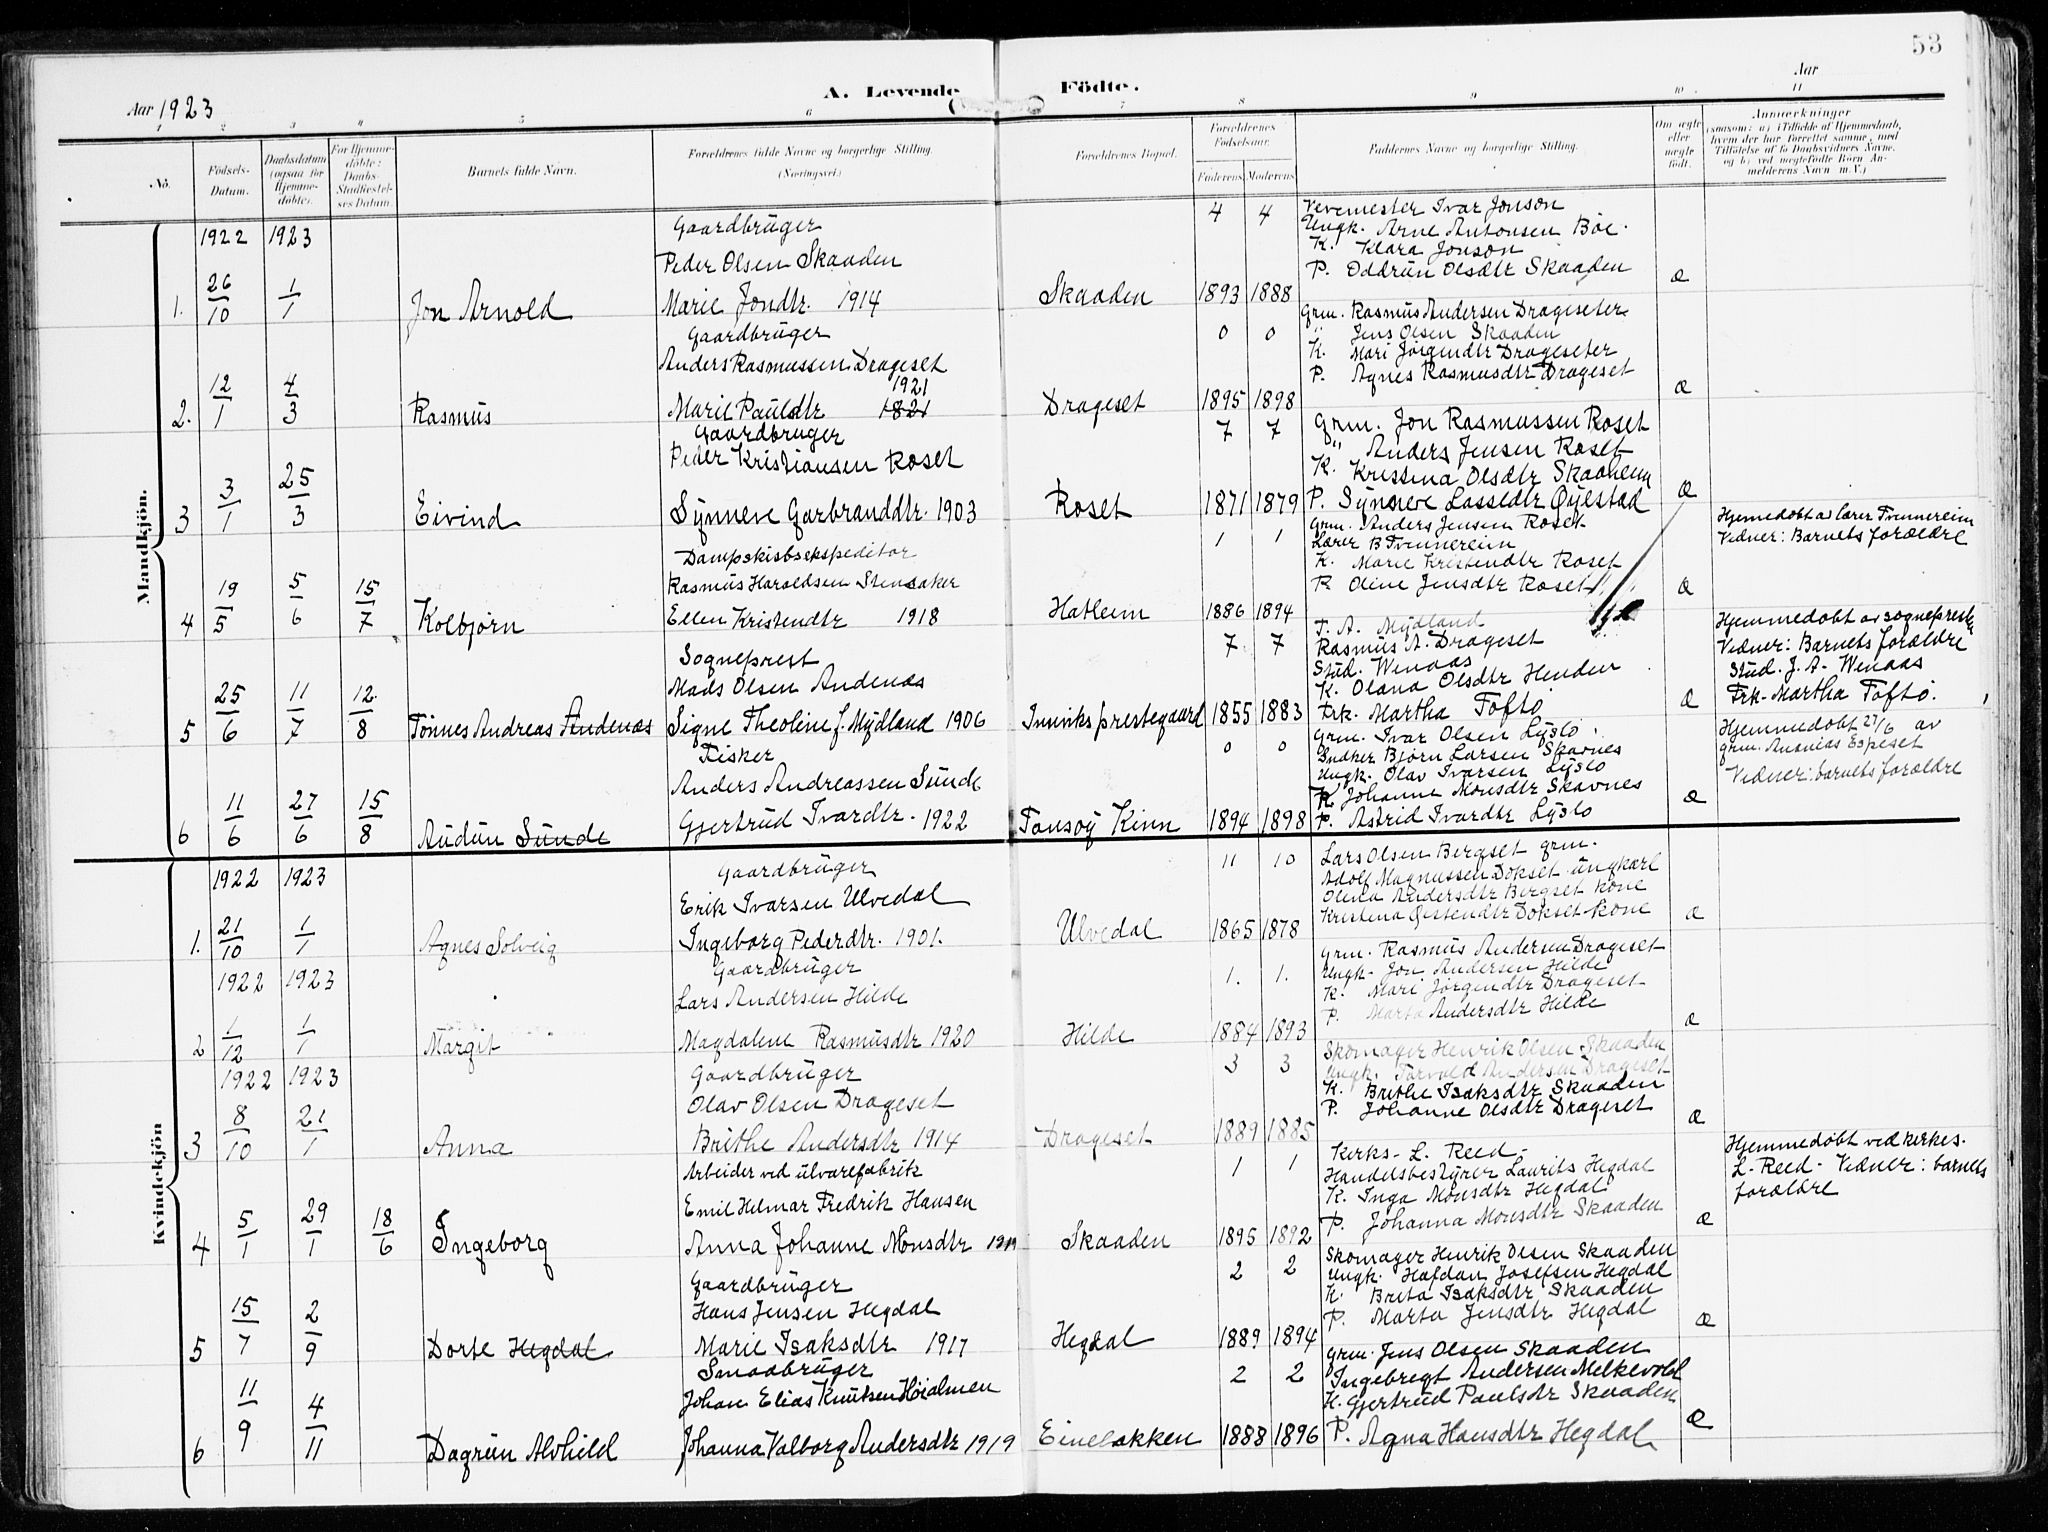 53
Aar 1923
A. Levende Födte.
Aar
1 2 3 4 5 6 7 8 9 10 11
No.
Födsels-Datum.
Daabsdatum (ogsaa for Hjemmedöbte).
For Hjemmedöbte: Daabs-Stadfæstelses Datum.
Barnets fulde Navn.
Forældrenes fulde Navne og borgerlige Stilling. (Næringsvei.)
Forældrenes Bopæl.
Forældrenes Födselsaar.
Faderens Moderens
Faddernes Navne og borgerlige Stilling.
Om ægte eller uægte födt.
Anmærkninger
(saasom: a) i Tilfælde af Hjemmedaab, hvem der har forrettet samme, med Tilföielse af to Daabsvidners Navne, og b) ved uægtefödte Börn Anmelderens Navn m. V.)
Mandkjön.
1922 1923
1. 26/10 1/1 Jon Arnold
Gaardbrüger
Peder Olsen Skaaden
Marie Jondtr. 1914
Skaaden
4 4
1893 1888
Vevemester Ivar Jonson
Ungk. Arne Antonsen Bøe.
K. Klara Jonson
P. Oddrün Olsdtr Skaaden
æ
2. 12/1 4/3 Rasmüs
Gaardbrüger
Anders Rasmussen Drageset
1921
Marie Pauldtr 1821
Drageset
0 0
1895 1898
Grm. Rasmüs Andersen Drageseter
" Jens Olsen Skaaden
K. Mari Jørgendtr Drageseter
P. Agnes Rasmusdtr Drageset
æ
3 3/1 25/3 Eivind
Gaardbrüger
Peder Kristiansen Roset
Synneve Garbranddtr. 1903
Roset
7 7
1871 1879
Grm. Jon Rasmussen Roset
" Anders Jensen Roset
K. Kristina Olsdtr Skaaheim
P. Synneve Lassedtr Øyestad
æ
4 19/5 5/6 15/7 Kolbjørn
Dampskibsekspeditør
Rasmüs Haroldsen Stensaker
Ellen Kristendtr 1918
Hatleim
1 1
1886 1894
Grm. Anders Jensen Roset
Lærer B Tvinnereim
K. Marie Kristendtr Roset
P. Oline Jensdtr Roset
æ
Hjemmedøbt av lærer Tvinnereim
Vidner: Barnets forældre
5 25/6 11/7 12/8 Tønnes Andreas Andenæs
Sogneprest
Mads Olsen Andenæs
Signe Theoline f. Mydland 1906
Inviks prestegaard
7 7
1855 1883
T. A. Mydland
Rasmüs A. Drageset
Stud. Wenaas
K. Olana Olsdtr Henden
Frk. Martha Toftø
æ
Hjemmedøbt av sognepresten
Vidner: Barnets forældre
Stud. J. A. Wenaas
Frk. Martha Toftø.
6 11/6 27/6 15/8 Audün Sünde
Fisker
Anders Andreassen Sünde
Gjertrüd Ivardtr. 1922
Tansøy Kinn
0 0
1894 1898
Grm. Ivar Olsen Lyslo
Snøker Bjørn Larsen Skavnes
Ungk. Olav Ivarsen Lyslo
K. Johanne Monsdtr Skavnes
P. Astrid Ivardtr Lyslo
æ
Hjemmedøbt 27/6 av
grm. Ananias Espeset
Vidner: barnets forældre
Kvindekjön
1922 1923
1. 21/10 1/1 Agnes Solveig
Gaardbrüger
Erik Ivarsen Ulvedal
Ingeborg Pederdtr. 1901.
Ulvedal
11 10
1865 1878
Lars Olsen Bergset grm.
Adolf Magnussen Dokset üngkarl
Olina Andersdtr Bergset kone
Kristina Gjestendtr Dokset kone
æ
1922 1923
2 1/12 1/1 Margit
Gaardbrüger
Lars Andersen Hilde
Magdalene Rasmusdtr 1920
Hilde
1. 1.
1884 1893
Grm. Rasmüs Andersen Drageset
Ungk. Jon Andersen Hilde
K. Mari Jørgendtr Drageset
P. Marta Andersdtr Hilde
æ
1922 1923
3 8/10 21/1 Anna
Gaardbrüger
Olav Olsen Drageset
Brithe Andersdtr 1914
Drageset
3 3
1889 1885
Skomager Henrik Olsen Skaaden
Ungk. Torvald Andersen Drageset
K. Brithe Isaksdtr Skaaden
P. Johanne Olsdtr Drageset
æ
4 5/1 29/1 18/6 Ingeborg
Arbeider ved ülvarefabrik
Emil Helmar Fredrik Hansen
Anna Johanne Monsdtr 1919
Skaaden
1 1
1895 1892
Kerks- L. Reed-
Handelsbestyrer Laurits Hegdal
K. Inga Monsdtr Hegdal
P. Johanna Monsdtr Skaaden
æ
Hjemmedøbt ved kirkes.
L. Reed- Vidner: barnets
forældre
5 15/7 2/9 Dorte Hegdal
Gaardbrüger
Hans Jensen Hegdal
Marie Isaksdtr 1917
Hegdal
2 2
1889 1894
Skomager Henrik Olsen Skaaden
Ungk. Hafdan Josefsen Hegdal
K. Brita Isaksdtr Skaaden
P. Marta Jensdtr Hegdal
æ
6 11/9 4/11 Dagrün Alvhild
Smaabrüger
Johan Elias Knutsen Høialmen
Johanna Valborg Andersdtr 1919
Einebakken
2 2
1888 1896
Grm. Jens Olsen Skaaden
Ingebregt Andersen Melkevold
K. Gjertrüd Paulsdtr Skaaden
P. Agna Hansdtr Hegdal
æ